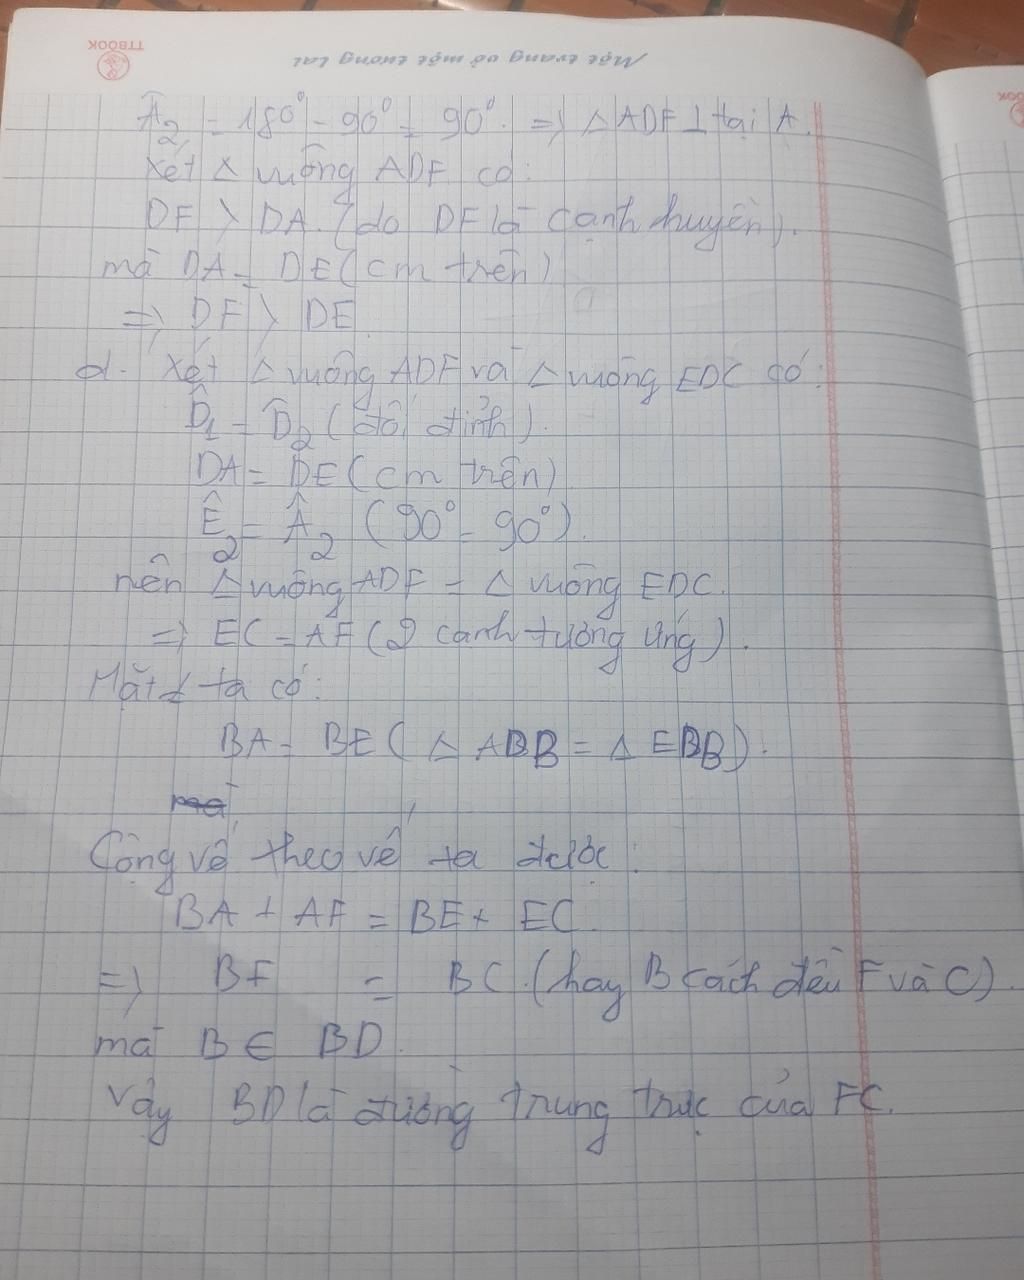 TTBOOK
Một trang vở một tương lai
Â₂ = 180° - 90° = 90°. => △ ADF ⊥ tại A.
Xét △ vuông ADF có:
DF > DA. (do DF là cạnh huyền).
mà DA = DE (cm trên)
=> DF > DE
d. Xét △ vuông ADF và △ vuông EDC có:
D̂₁ = D̂₂ (đối đỉnh).
DA = DE (cm trên)
Ê₂ = Â₂ (90° = 90°).
nên △ vuông ADF = △ vuông EDC.
=> EC = AF (2 cạnh tương ứng).
Mặt ≠ ta có:
BA = BE (△ ABB = △ EBB).
Cộng vế theo vế ta được:
BA + AF = BE + EC
=> BF = BC. (hay B cách đều F và C).
mà B ∈ BD.
Vậy BD là đường trung trực của FC.